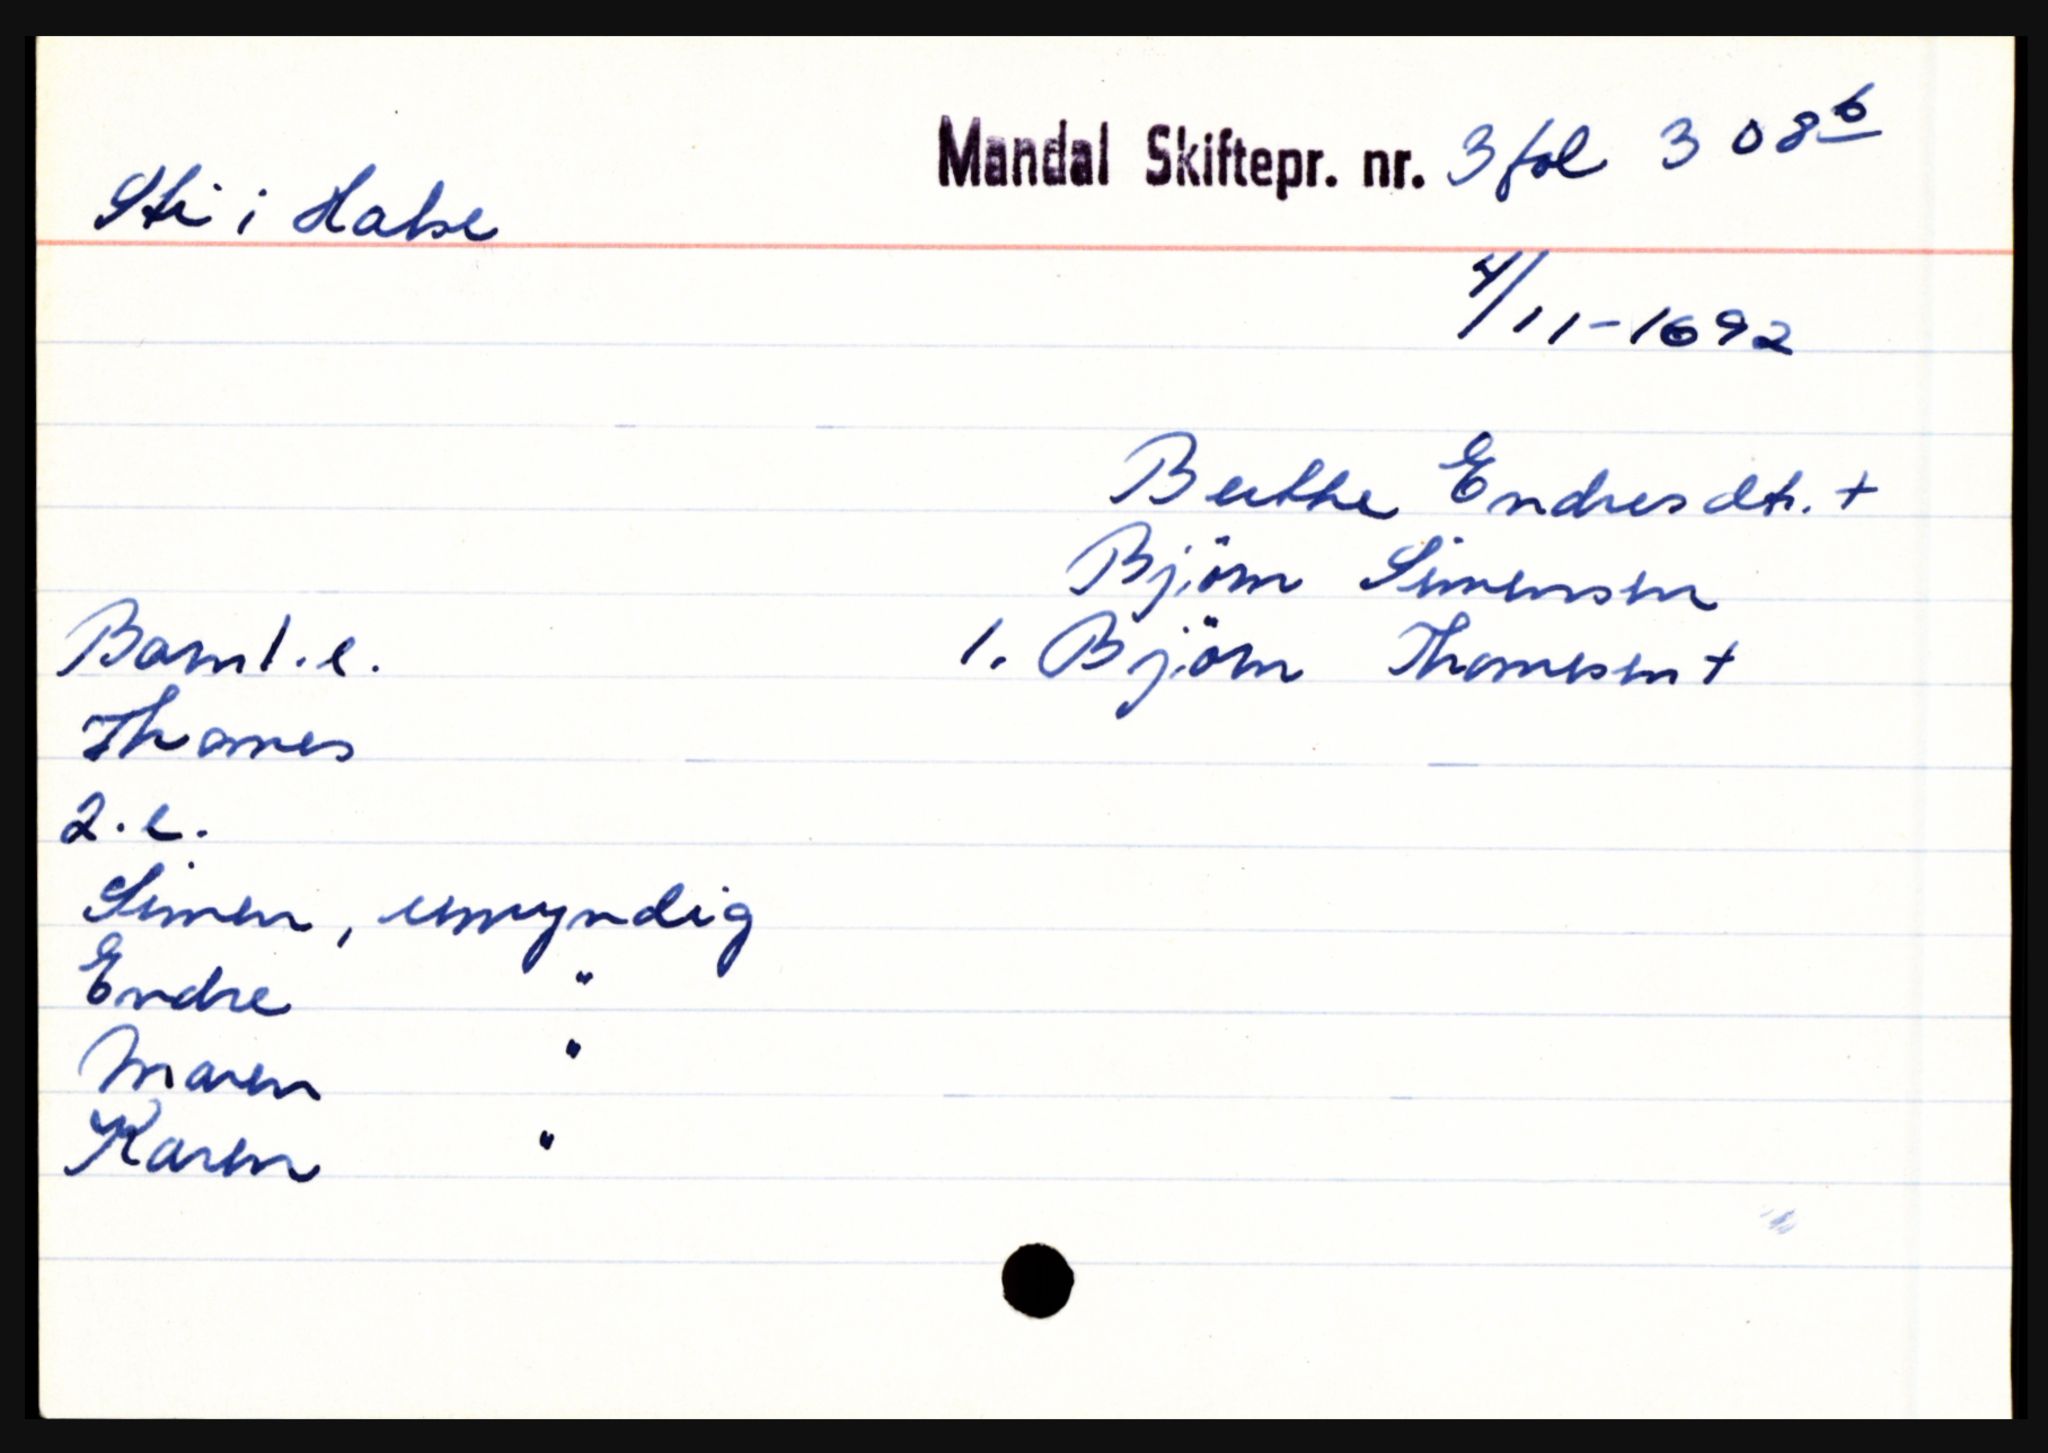 Mandal Skiftepr. nr. 3 fol 308b
Sti i Halse
4/11-1692
Berthe Endresdtr. +
Bjørn Simensen
Barn 1. e.
1. Bjørn Thomesen +
Thomes
2. e.
Simen, umyndig
Endre "
Maren "
Karen "